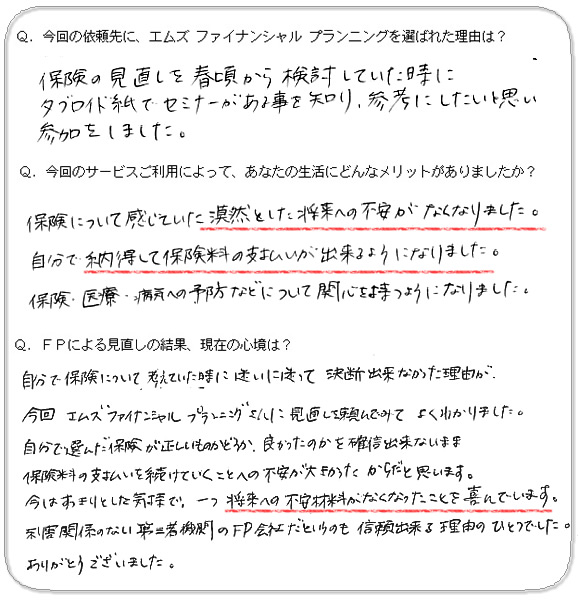 Q．今回の依頼先に、エムズ ファイナンシャル プランニングを選ばれた理由は？
保険の見直しを春頃から検討していた時に
タブロイド紙でセミナーがある事を知り、参考にしたいと思い
参加をしました。
Q．今回のサービスご利用によって、あなたの生活にどんなメリットがありましたか？
保険について感じていた漠然とした将来への不安がなくなりました。
自分で納得して保険料の支払いが出来るようになりました。
保険・医療・病気への予防などについて関心を持つようになりました。
Q．ＦＰによる見直しの結果、現在の心境は？
自分で保険について考えていた時に迷いに迷って決断出来なかった理由が、
今回エムズファイナンシャルプランニングさんに見直しを頼んでみてよくわかりました。
自分で選んだ保険が正しいものかどうか、良かったのかを確信出来ないまま
保険料の支払いを続けていくことへの不安が大きかったからだと思います。
今はすっきりとした気持で、一つ将来への不安材料がなくなったことを喜んでいます。
利害関係のない第三者機関のFP会社だというのも信頼出来る理由のひとつでした。
ありがとうございました。